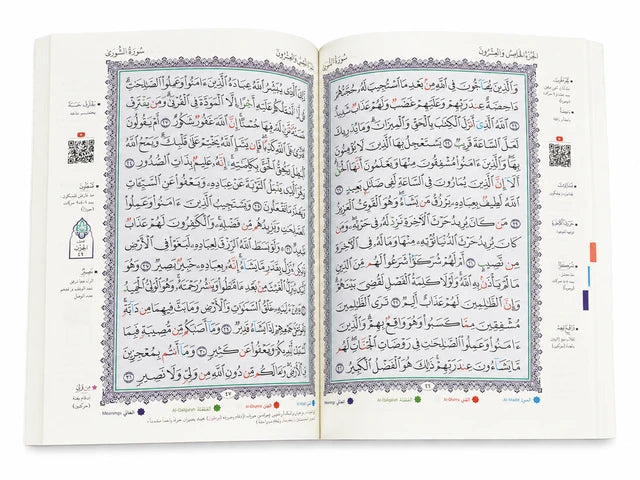 الجزء الخامس والعشرون
سورة الشورى
وَالَّذِينَ يُحَاجُّونَ فِي اللَّهِ مِنْ بَعْدِ مَا اسْتُجِيبَ لَهُ حُجَّتُهُمْ
دَاحِضَةٌ عِنْدَ رَبِّهِمْ وَعَلَيْهِمْ غَضَبٌ وَلَهُمْ عَذَابٌ شَدِيدٌ
١٦ اللَّهُ الَّذِي أَنْزَلَ الْكِتَابَ بِالْحَقِّ وَالْمِيزَانَ وَمَا يُدْرِيكَ
لَعَلَّ السَّاعَةَ قَرِيبٌ ١٧ يَسْتَعْجِلُ بِهَا الَّذِينَ لَا يُؤْمِنُونَ
بِهَا وَالَّذِينَ آمَنُوا مُشْفِقُونَ مِنْهَا وَيَعْلَمُونَ أَنَّهَا الْحَقُّ
أَلَا إِنَّ الَّذِينَ يُمَارُونَ فِي السَّاعَةِ لَفِي ضَلَالٍ بَعِيدٍ ١٨
اللَّهُ لَطِيفٌ بِعِبَادِهِ يَرْزُقُ مَنْ يَشَاءُ وَهُوَ الْقَوِيُّ الْعَزِيزُ
١٩ مَنْ كَانَ يُرِيدُ حَرْثَ الْآخِرَةِ نَزِدْ لَهُ فِي حَرْثِهِ وَمَنْ
كَانَ يُرِيدُ حَرْثَ الدُّنْيَا نُؤْتِهِ مِنْهَا وَمَا لَهُ فِي الْآخِرَةِ
مِنْ نَصِيبٍ ٢٠ أَمْ لَهُمْ شُرَكَاءُ شَرَعُوا لَهُمْ مِنَ الدِّينِ
مَا لَمْ يَأْذَنْ بِهِ اللَّهُ وَلَوْلَا كَلِمَةُ الْفَصْلِ لَقُضِيَ بَيْنَهُمْ
وَإِنَّ الظَّالِمِينَ لَهُمْ عَذَابٌ أَلِيمٌ ٢١ تَرَى الظَّالِمِينَ
مُشْفِقِينَ مِمَّا كَسَبُوا وَهُوَ وَاقِعٌ بِهِمْ وَالَّذِينَ
آمَنُوا وَعَمِلُوا الصَّالِحَاتِ فِي رَوْضَاتِ الْجَنَّاتِ لَهُمْ
مَا يَشَاءُونَ عِنْدَ رَبِّهِمْ ذَلِكَ هُوَ الْفَضْلُ الْكَبِيرُ ٢٢
Al-Qalqalah Al-Ghunna Al-Madd
سورة الشورى
ذَلِكَ الَّذِي يُبَشِّرُ اللَّهُ عِبَادَهُ الَّذِينَ آمَنُوا وَعَمِلُوا الصَّالِحَاتِ
قُلْ لَا أَسْأَلُكُمْ عَلَيْهِ أَجْرًا إِلَّا الْمَوَدَّةَ فِي الْقُرْبَى وَمَنْ يَقْتَرِفْ
حَسَنَةً نَزِدْ لَهُ فِيهَا حُسْنًا إِنَّ اللَّهَ غَفُورٌ شَكُورٌ ٢٣ أَمْ يَقُولُونَ
افْتَرَى عَلَى اللَّهِ كَذِبًا فَإِنْ يَشَإِ اللَّهُ يَخْتِمْ عَلَى قَلْبِكَ وَيَمْحُ اللَّهُ
الْبَاطِلَ وَيُحِقُّ الْحَقَّ بِكَلِمَاتِهِ إِنَّهُ عَلِيمٌ بِذَاتِ الصُّدُورِ ٢٤
وَهُوَ الَّذِي يَقْبَلُ التَّوْبَةَ عَنْ عِبَادِهِ وَيَعْفُو عَنِ السَّيِّئَاتِ
وَيَعْلَمُ مَا تَفْعَلُونَ ٢٥ وَيَسْتَجِيبُ الَّذِينَ آمَنُوا وَعَمِلُوا
الصَّالِحَاتِ وَيَزِيدُهُمْ مِنْ فَضْلِهِ وَالْكَافِرُونَ لَهُمْ عَذَابٌ
شَدِيدٌ ٢٦ وَلَوْ بَسَطَ اللَّهُ الرِّزْقَ لِعِبَادِهِ لَبَغَوْا فِي الْأَرْضِ
وَلَكِنْ يُنَزِّلُ بِقَدَرٍ مَا يَشَاءُ إِنَّهُ بِعِبَادِهِ خَبِيرٌ بَصِيرٌ ٢٧ وَهُوَ
الَّذِي يُنَزِّلُ الْغَيْثَ مِنْ بَعْدِ مَا قَنَطُوا وَيَنْشُرُ رَحْمَتَهُ وَهُوَ
الْوَلِيُّ الْحَمِيدُ ٢٨ وَمِنْ آيَاتِهِ خَلْقُ السَّمَاوَاتِ وَالْأَرْضِ وَمَا بَثَّ فِيهِمَا مِنْ دَابَّةٍ
وَهُوَ عَلَى جَمْعِهِمْ إِذَا يَشَاءُ قَدِيرٌ ٢٩ وَمَا أَصَابَكُمْ مِنْ مُصِيبَةٍ فَبِمَا
كَسَبَتْ أَيْدِيكُمْ وَيَعْفُو عَنْ كَثِيرٍ ٣٠ وَمَا أَنْتُمْ بِمُعْجِزِينَ
فِي الْأَرْضِ وَمَا لَكُمْ مِنْ دُونِ اللَّهِ مِنْ وَلِيٍّ وَلَا نَصِيرٍ ٣١
Meanings المعاني Al-Qalqalah القلقلة Al-Ghunna الغنة